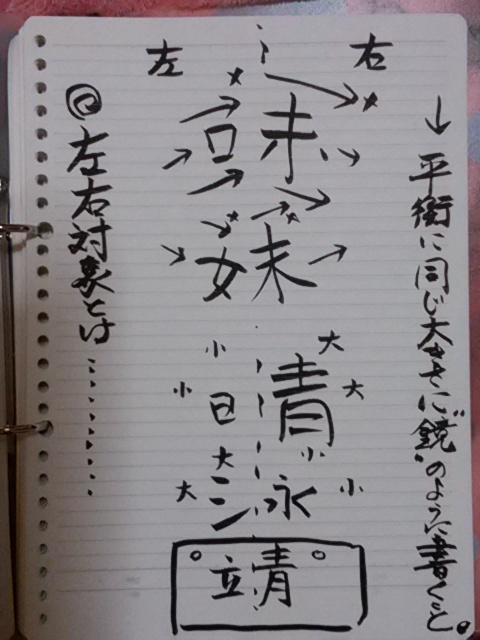 ↓平衡に同じ大きさに"鏡"のように書くこと。
左 右
味
妹
小 大
小 大
晴
大 小
大 小
泳
靖
◎左右対象とは………